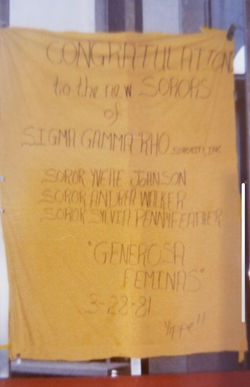 CONGRATULATION
to the new SORORS
of
SIGMA GAMMA RHO SORORITY, INC.
SOROR YVETTE JOHNSON
SOROR ANDREA WALKER
SOROR SYLVIA PENNYFEATHER
"GENEROSA
FEMINAS"
3-28-81